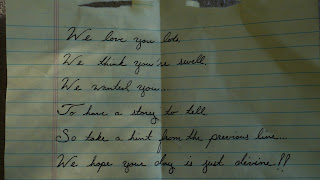 We love you lots
We think you're swell,
We wanted you
To have a story to tell,
So take a hint from the previous line...
We hope your day is just divine!!